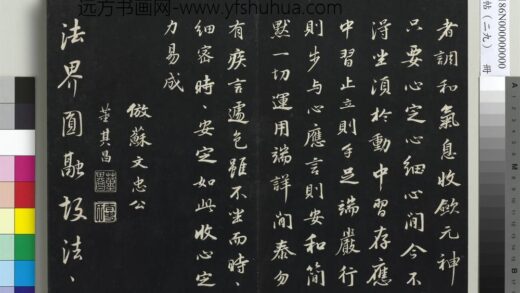 远方书画网-www.yfshuhua.com
186N000000000
帖(二九) 册
者調和氣息收斂元神
只要心定心細心閒今不
得坐須於動中習存應
中習止立則手足端嚴行
則步与心應言則安和簡
默一切運用端詳閒泰勿
有疾言遽色雖不坐而時、
細密時、安定如此收心定
力易成
倣蘇文忠公
董其昌
法界圓融